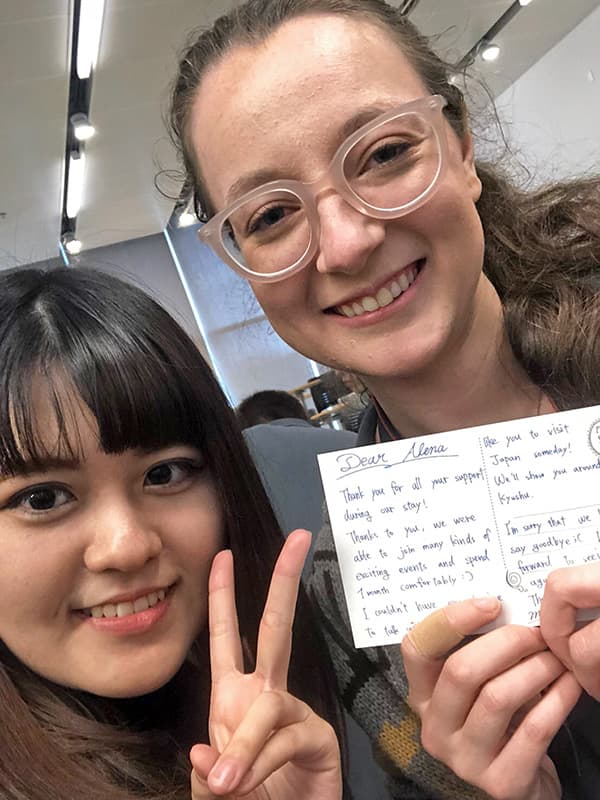 Dear Mena
Thank you for all your support
during our stay!
Thanks to you, we were
able to join many kinds of
exciting events and spend
1 month comfortably :)
I couldn't have
To talk
like you to visit
Japan someday!
We'll show you around
Kyushu.
I'm sorry that we
say goodbye :( I
forward to